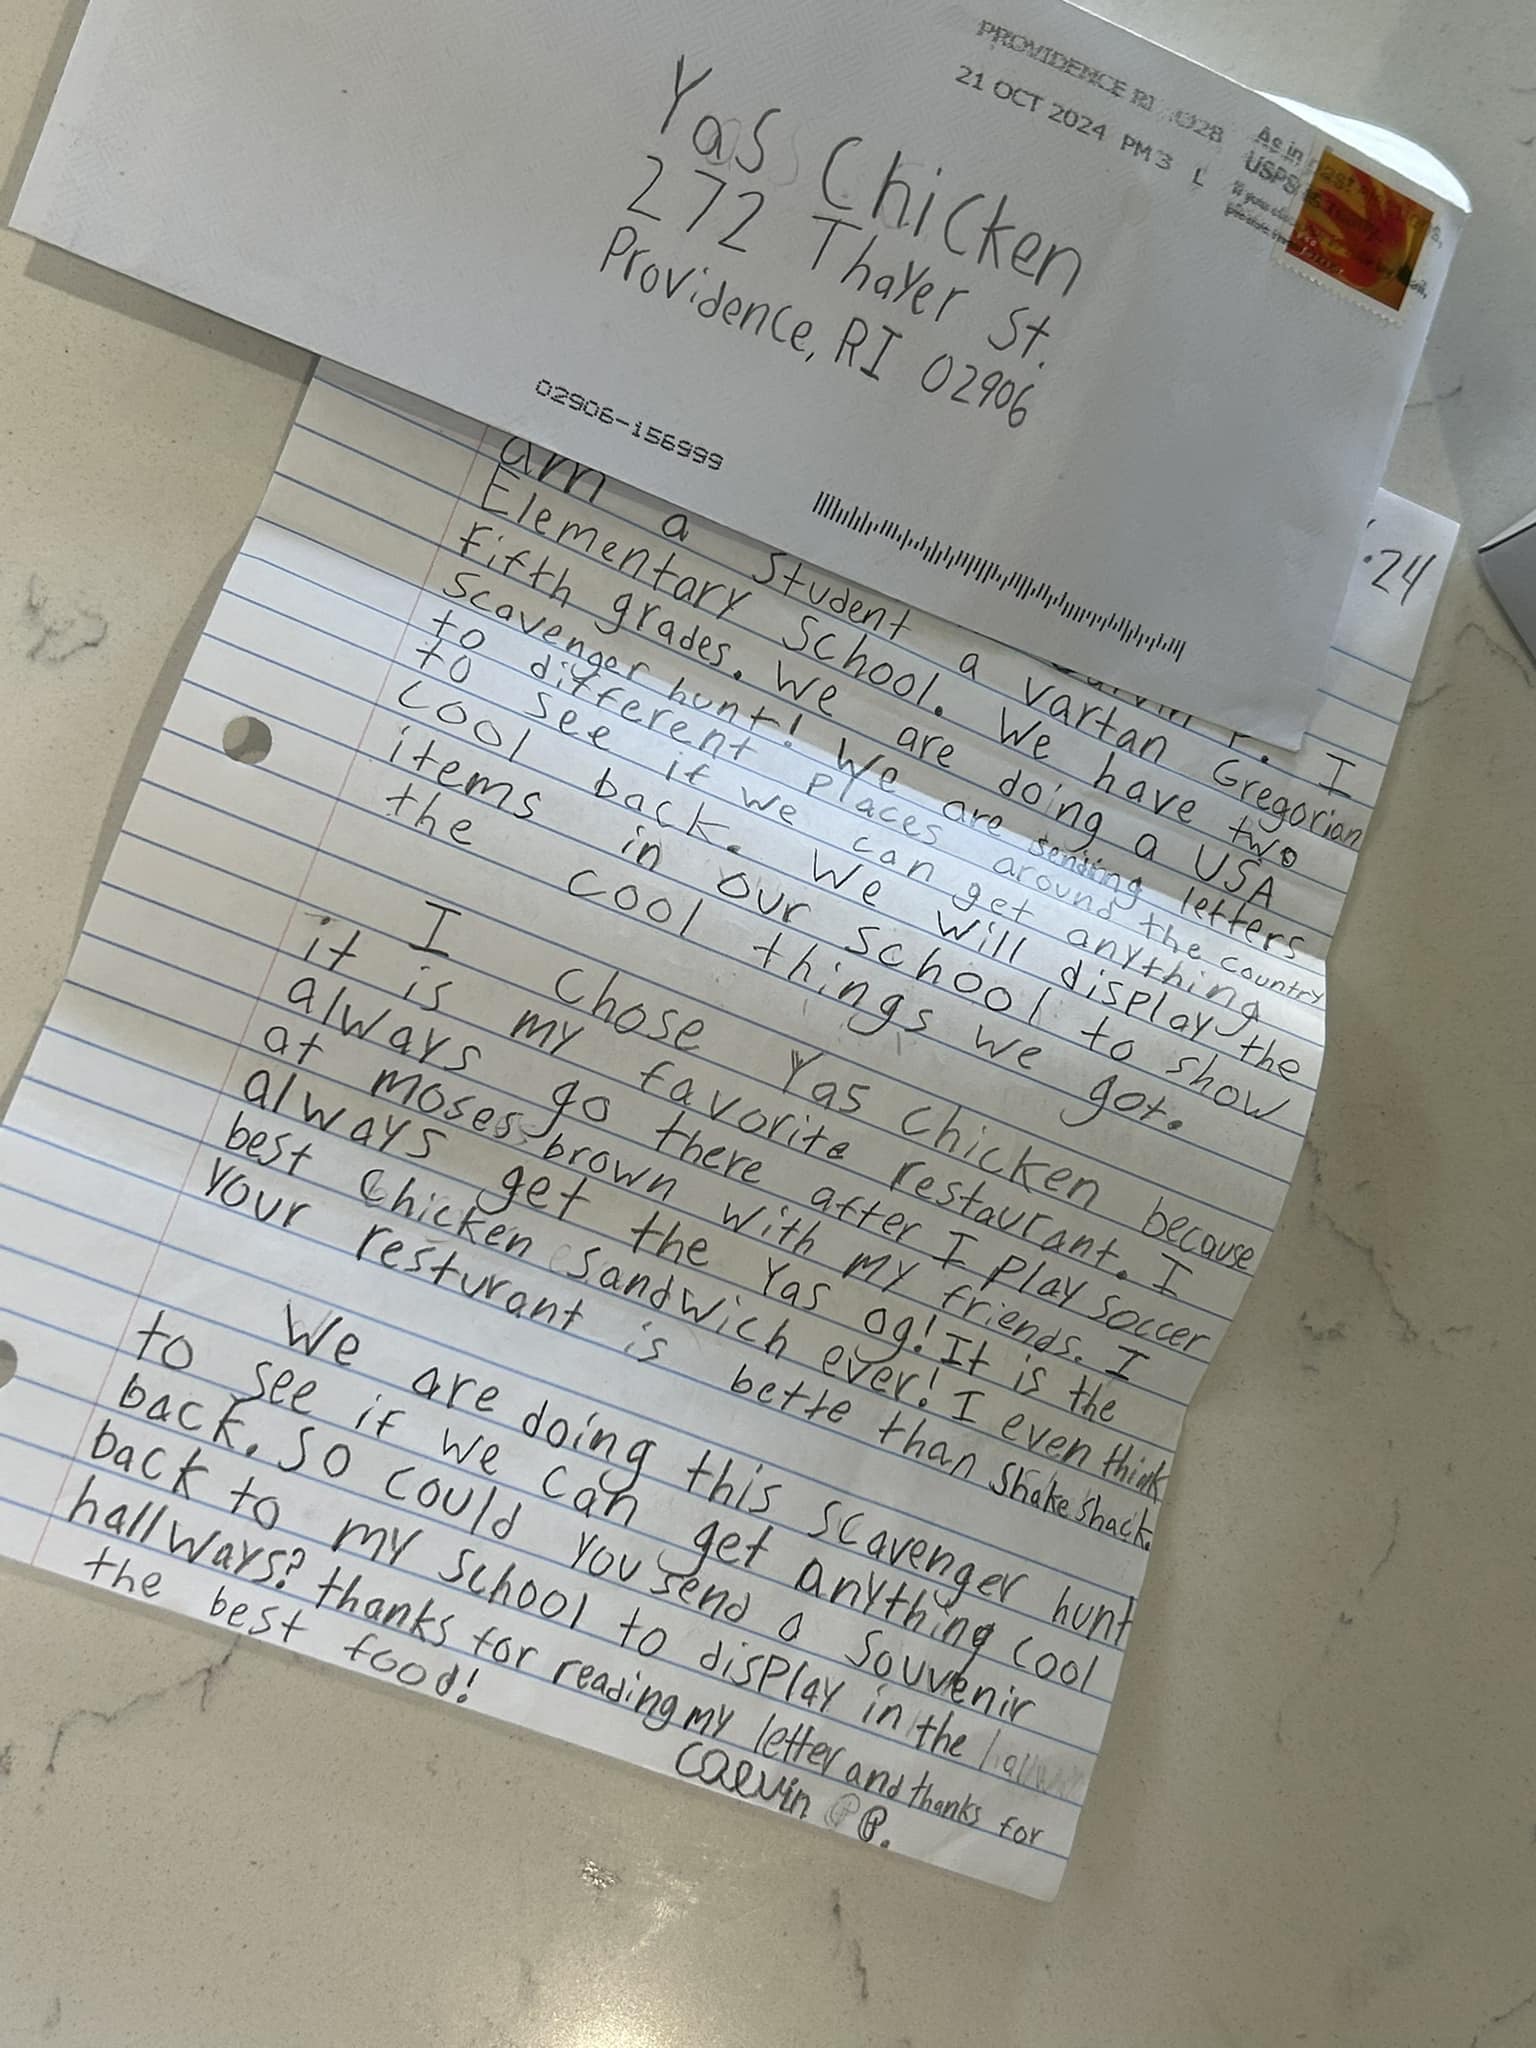 PROVIDENCE RI 028
21 OCT 2024 PM 3 L
As in
USPS
Yas Chicken
272 Thayer St.
Providence, RI 02906
02906-156999
.24
P. I
am a student a Vartan Gregorian
Elementary School. We have two
fifth grades. We are doing a USA
Scavenger hunt! We are sending letters
to different places around the country
to see if we can get anything
cool back. We will display the
items in our school to show
the cool things we got.
I chose Yas Chicken because
it is my favorite restaurant. I
always go there after I play soccer
at moses brown with my friends. I
always get the Yas og! It is the
best Chicken Sandwich ever! I even think
Your resturant is bette than Shake Shack.
We are doing this scavenger hunt
to see if we can get anything cool
back. So could you send a souvenir
back to my school to display in the
hallways? thanks for reading my letter and thanks for
the best food!
Calvin P.